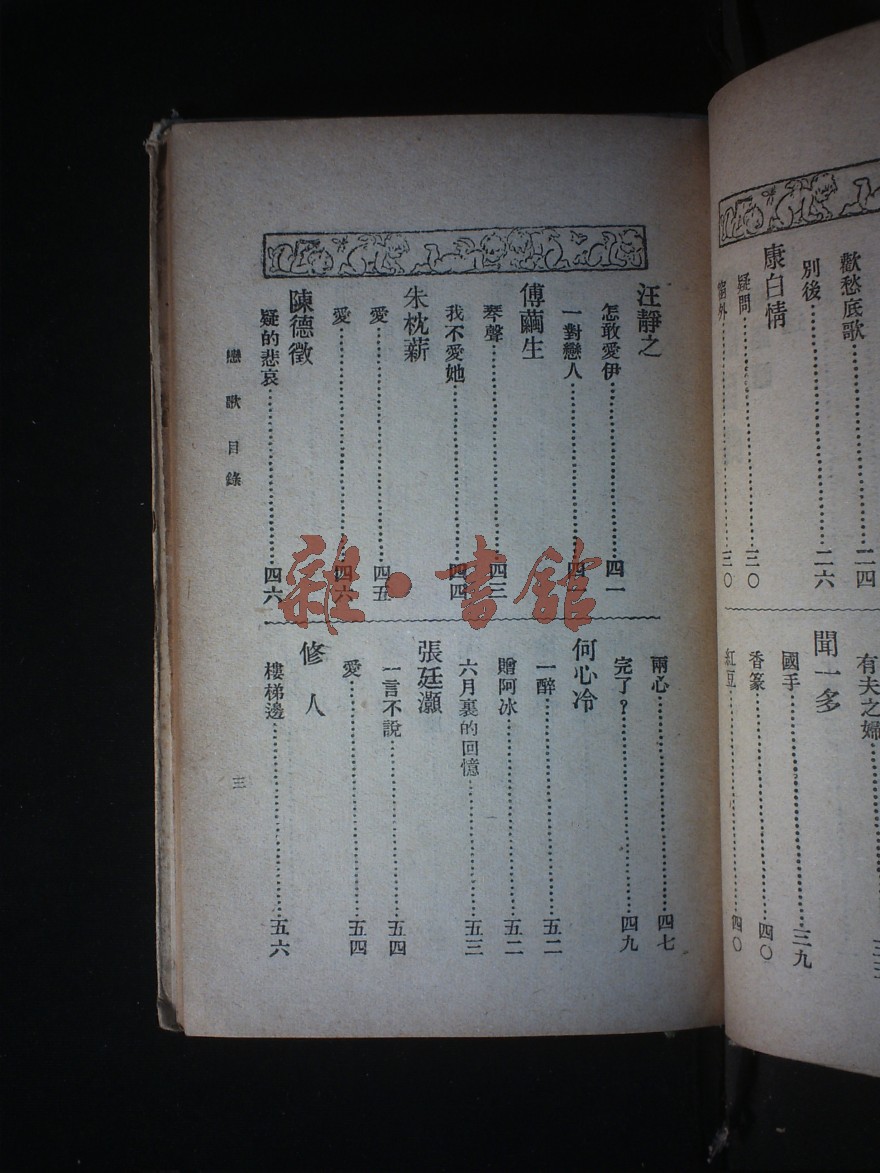 歡愁底歌……二四
別後……二六
康白情
疑問……三〇
窗外……三〇
有夫之婦
聞一多
國手……三九
香篆……四〇
紅豆……四〇
汪靜之
怎敢愛伊……四一
一對戀人……四二
傅繭生
琴聲……四三
我不愛她……四四
朱枕薪
愛……四五
愛……四六
陳德徵
疑的悲哀……四六
兩心……四七
完了？……四九
何心冷
一醉……五二
贈阿冰……五二
六月裏的回憶……五三
張廷灝
一言不說……五四
愛……五四
修人
樓梯邊……五六
戀歌目錄
三
雜·書館